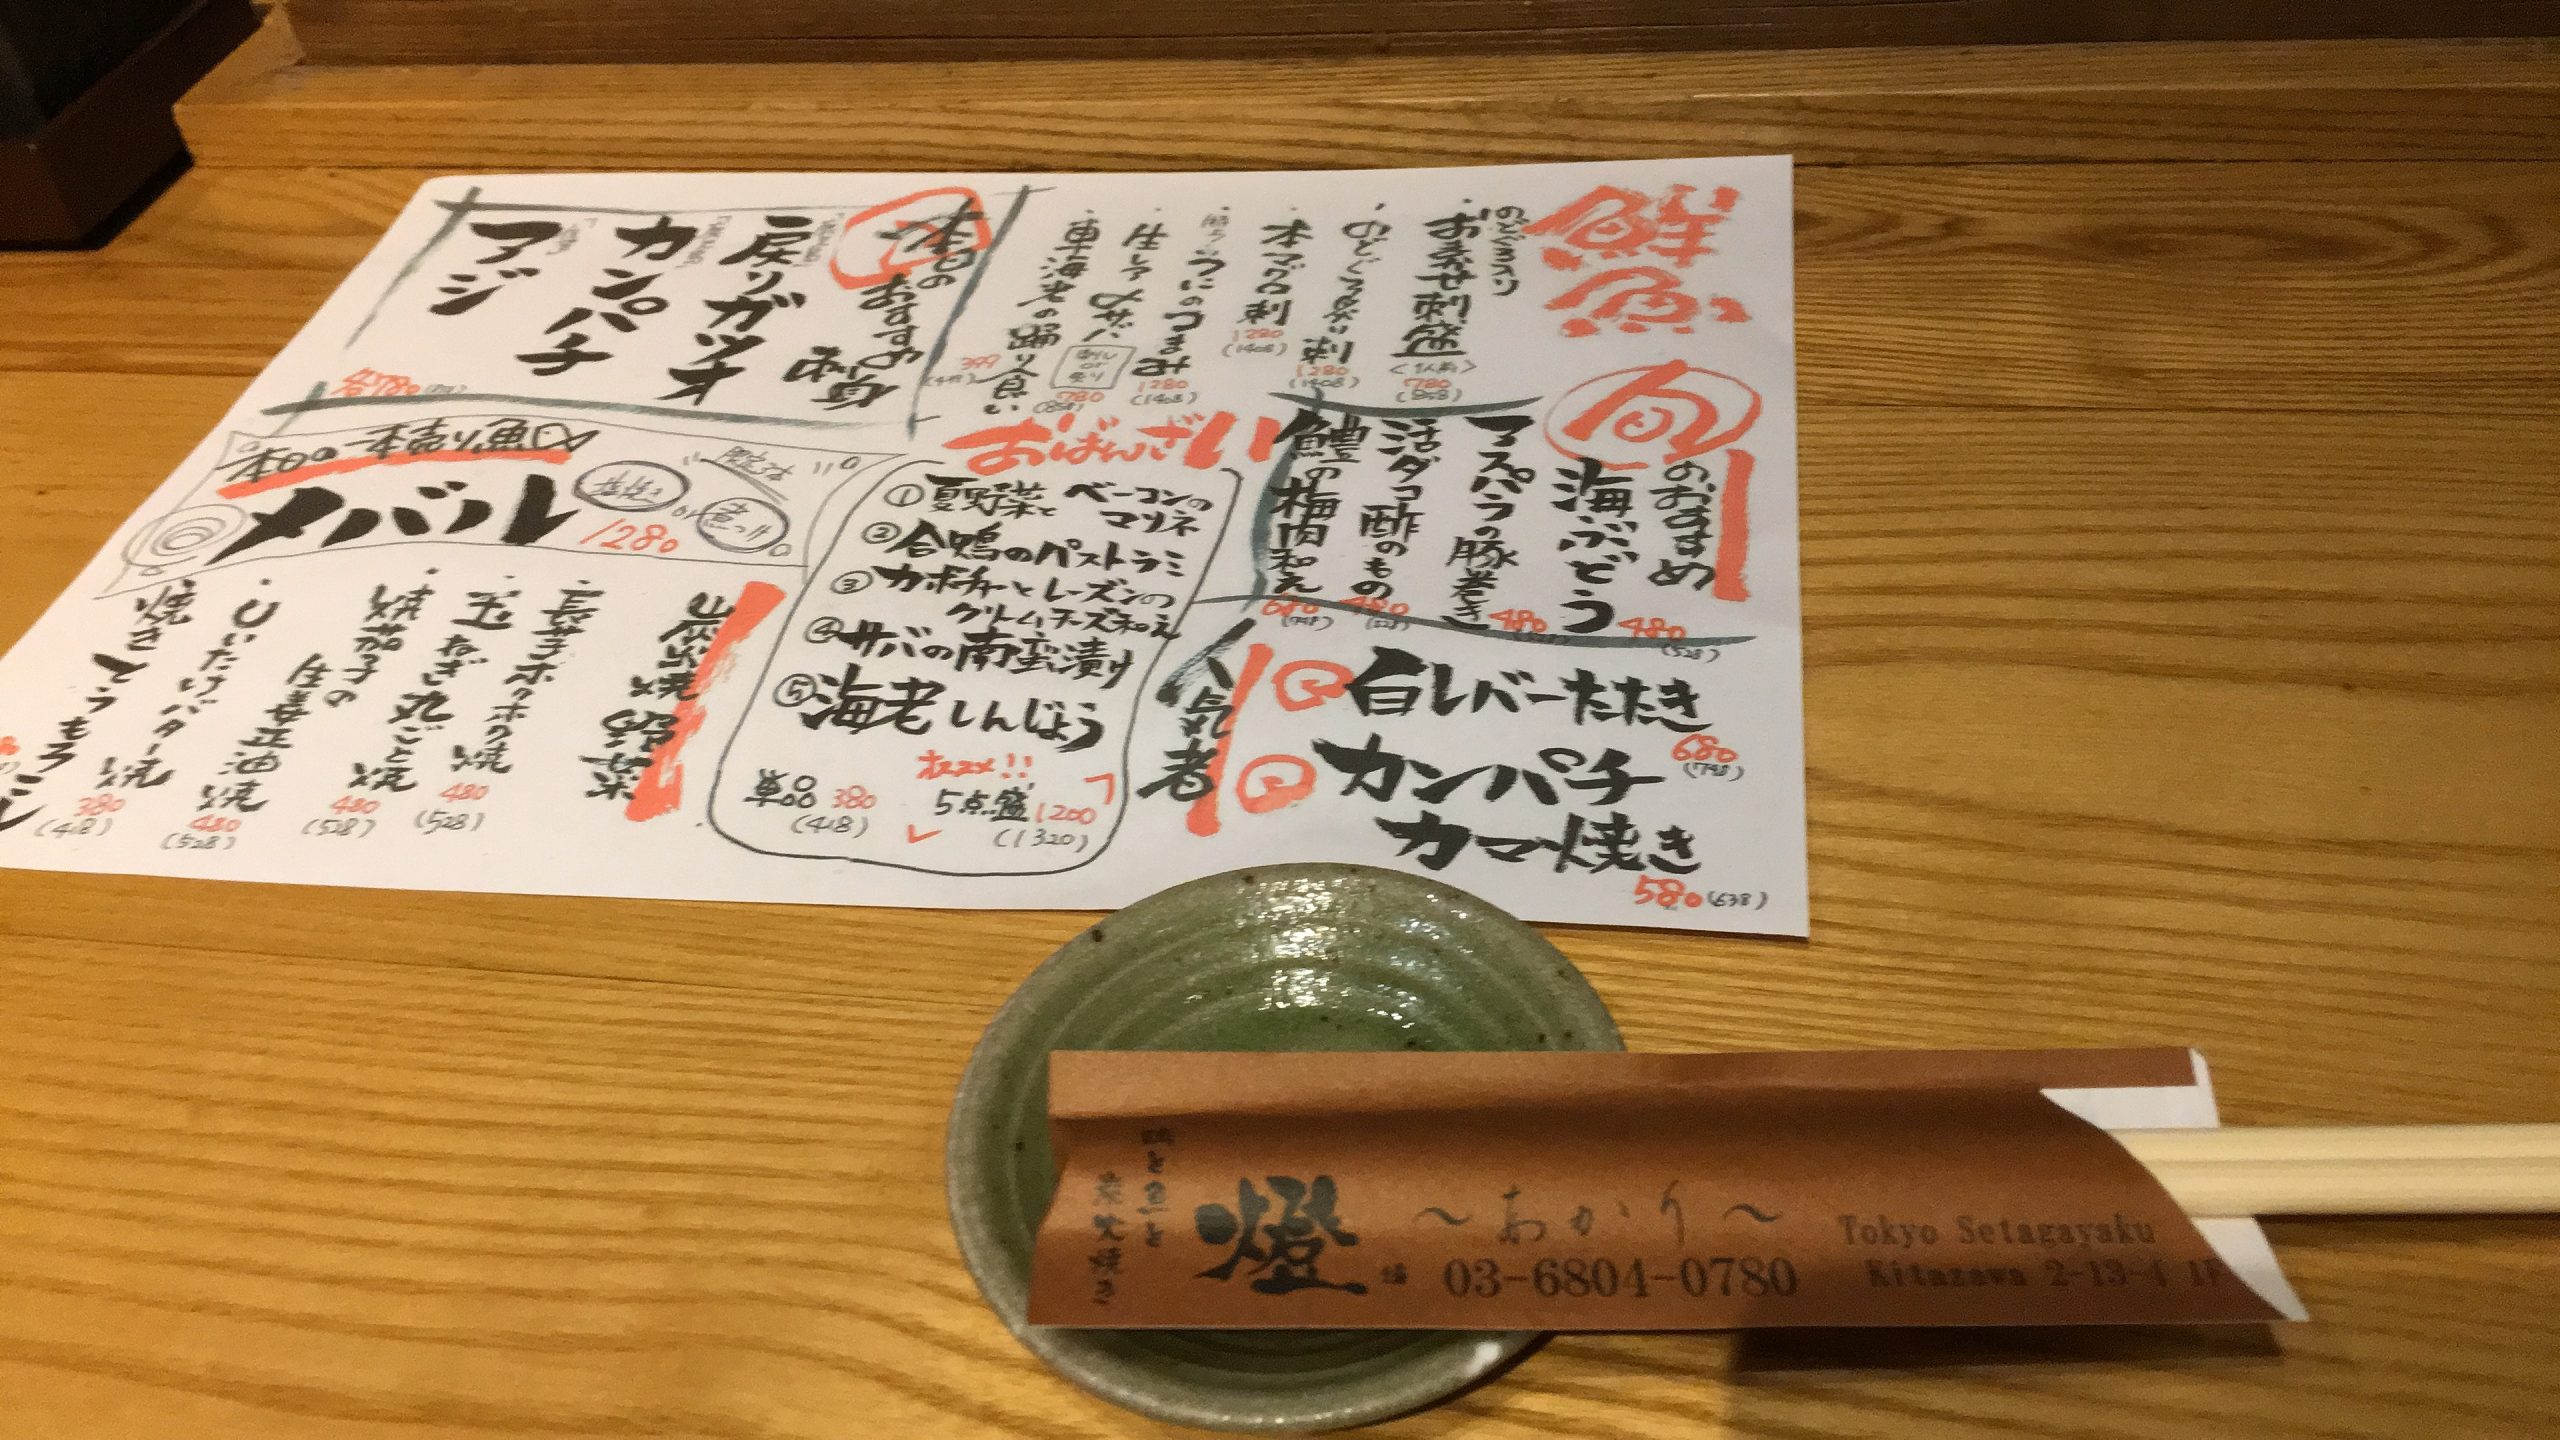 鮮魚
のどぐろ入り
おまかせ刺盛
<1人前>
780
(858)
のどぐろ炙り刺
1280
(1408)
本マグロ刺
1280
(1408)
うにのつまみ
1280
(1408)
生〆サバ
780
(858)
車海老の踊り食い
399
本日のおすすめ
刺身
戻りガツオ
カンパチ
アジ
各780
旬のおすすめ
海ぶどう
480
(528)
アスパラの豚巻き
480
活ダコ酢のもの
480
(528)
鱧の梅肉和え
680
(748)
おばんざい
①夏野菜とベーコンの
マリネ
②合鴨のパストラミ
③カボチャとレーズンの
クリームチーズ和え
④サバの南蛮漬け
⑤海老しんじょう
単品 380
(418)
オススメ!!
5点盛 1200
(1320)
本日の一本売り魚
メバル
塩焼き or 煮つけ
1280
人気者
白レバーたたき
680
(748)
カンパチ
カマ焼き
580 (638)
炭火焼 野菜
長芋ホクホク焼
480
(528)
玉ねぎ丸ごと焼
480
(528)
焼茄子の
生姜正油焼
480
(528)
しいたけバター焼
380
(418)
焼きとうもろこし
燈
～あかり～
03-6804-0780
Tokyo Setagayaku
Kitazawa 2-13-4 1F